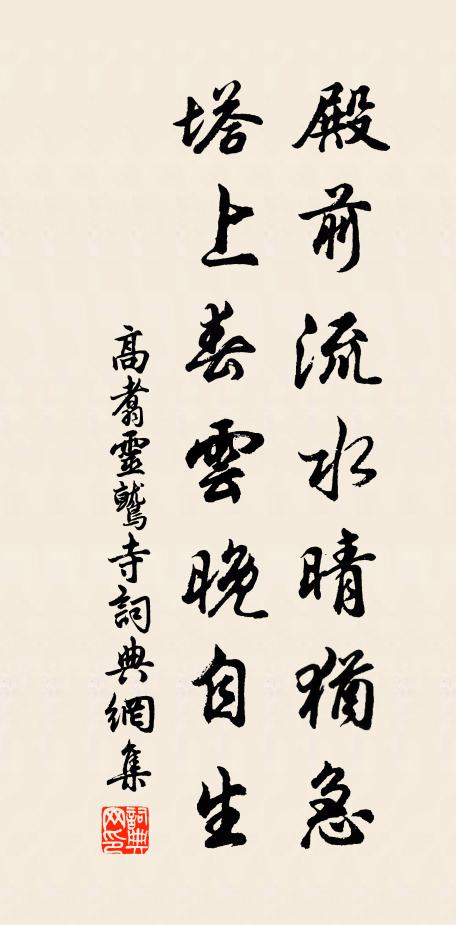 殿前流水晴猶急
塔上春雲晚自生
高翥靈鷲寺詞典網集
詞典网印